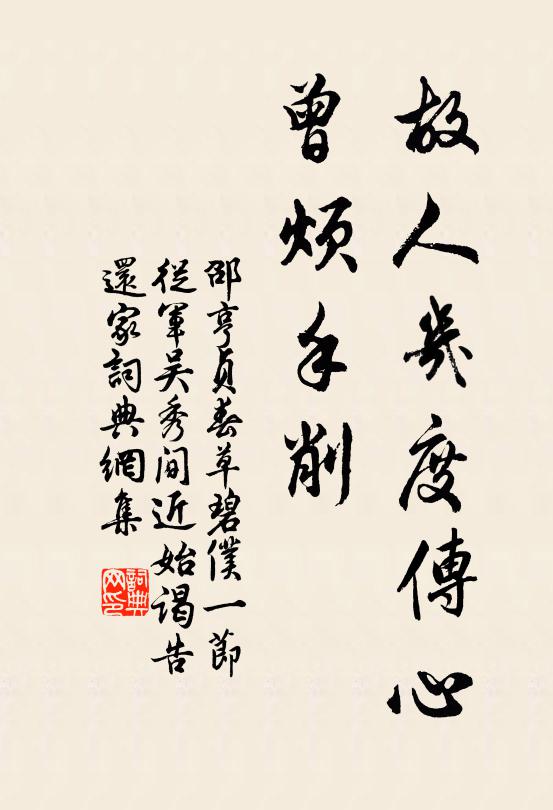 故人幾度傳心
曾煩手削
邵亨貞春草碧僕一節
從軍吳秀間近始謁告
還家詞典網集
詞典网印